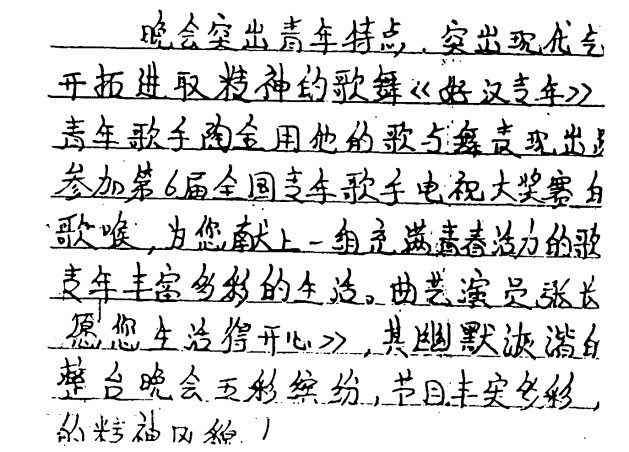 晚会突出青年特点、突出现代气
开拓进取精神的歌舞《好汉青年》
青年歌手陶金用他的歌与舞表现出
参加第6届全国青年歌手电视大奖赛
歌喉，为您献上一组充满青春活力的歌
青年丰富多彩的生活。曲艺演员张长
愿您生活得开心》，其幽默诙谐
整台晚会五彩缤纷，节目丰突多彩，
的精神风貌！